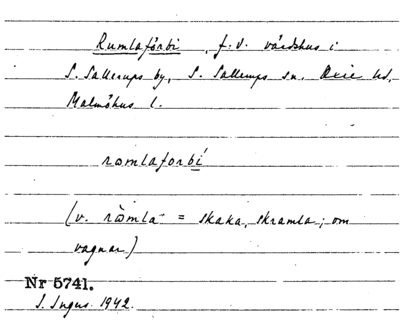 Rumlaförbi, f.d. värdshus i
S. Sallerups by, S. Sallerups sn. Oxie hd,
Malmöhus l.
romlaforbi´
(v. rømla = skaka, skramla; om
vagnar)
Nr 5741.
S. Ingus. 1942.